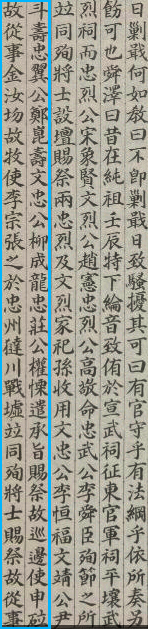 日剿戢何如敎曰不卽剿戢日致騷擾其可曰有官守乎有法綱乎依所奏另
飭可也舜澤曰昔在純祖壬辰特下綸音致侑於宣武祠征東官軍祠平壤武
烈祠而忠烈公宋象賢文烈公趙憲忠烈公高敬命忠武公李舜臣殉節之所
竝同殉將士設壇賜祭兩忠烈及文烈家祀孫收用文忠公李恒福文靖公尹
斗壽忠翼公鄭崑壽文忠公柳成龍忠莊公權慄遣承旨賜祭故巡邊使申砬
故從事金汝岉故牧使李宗張之於忠州㺚川戰墟竝同殉將士賜祭故從事